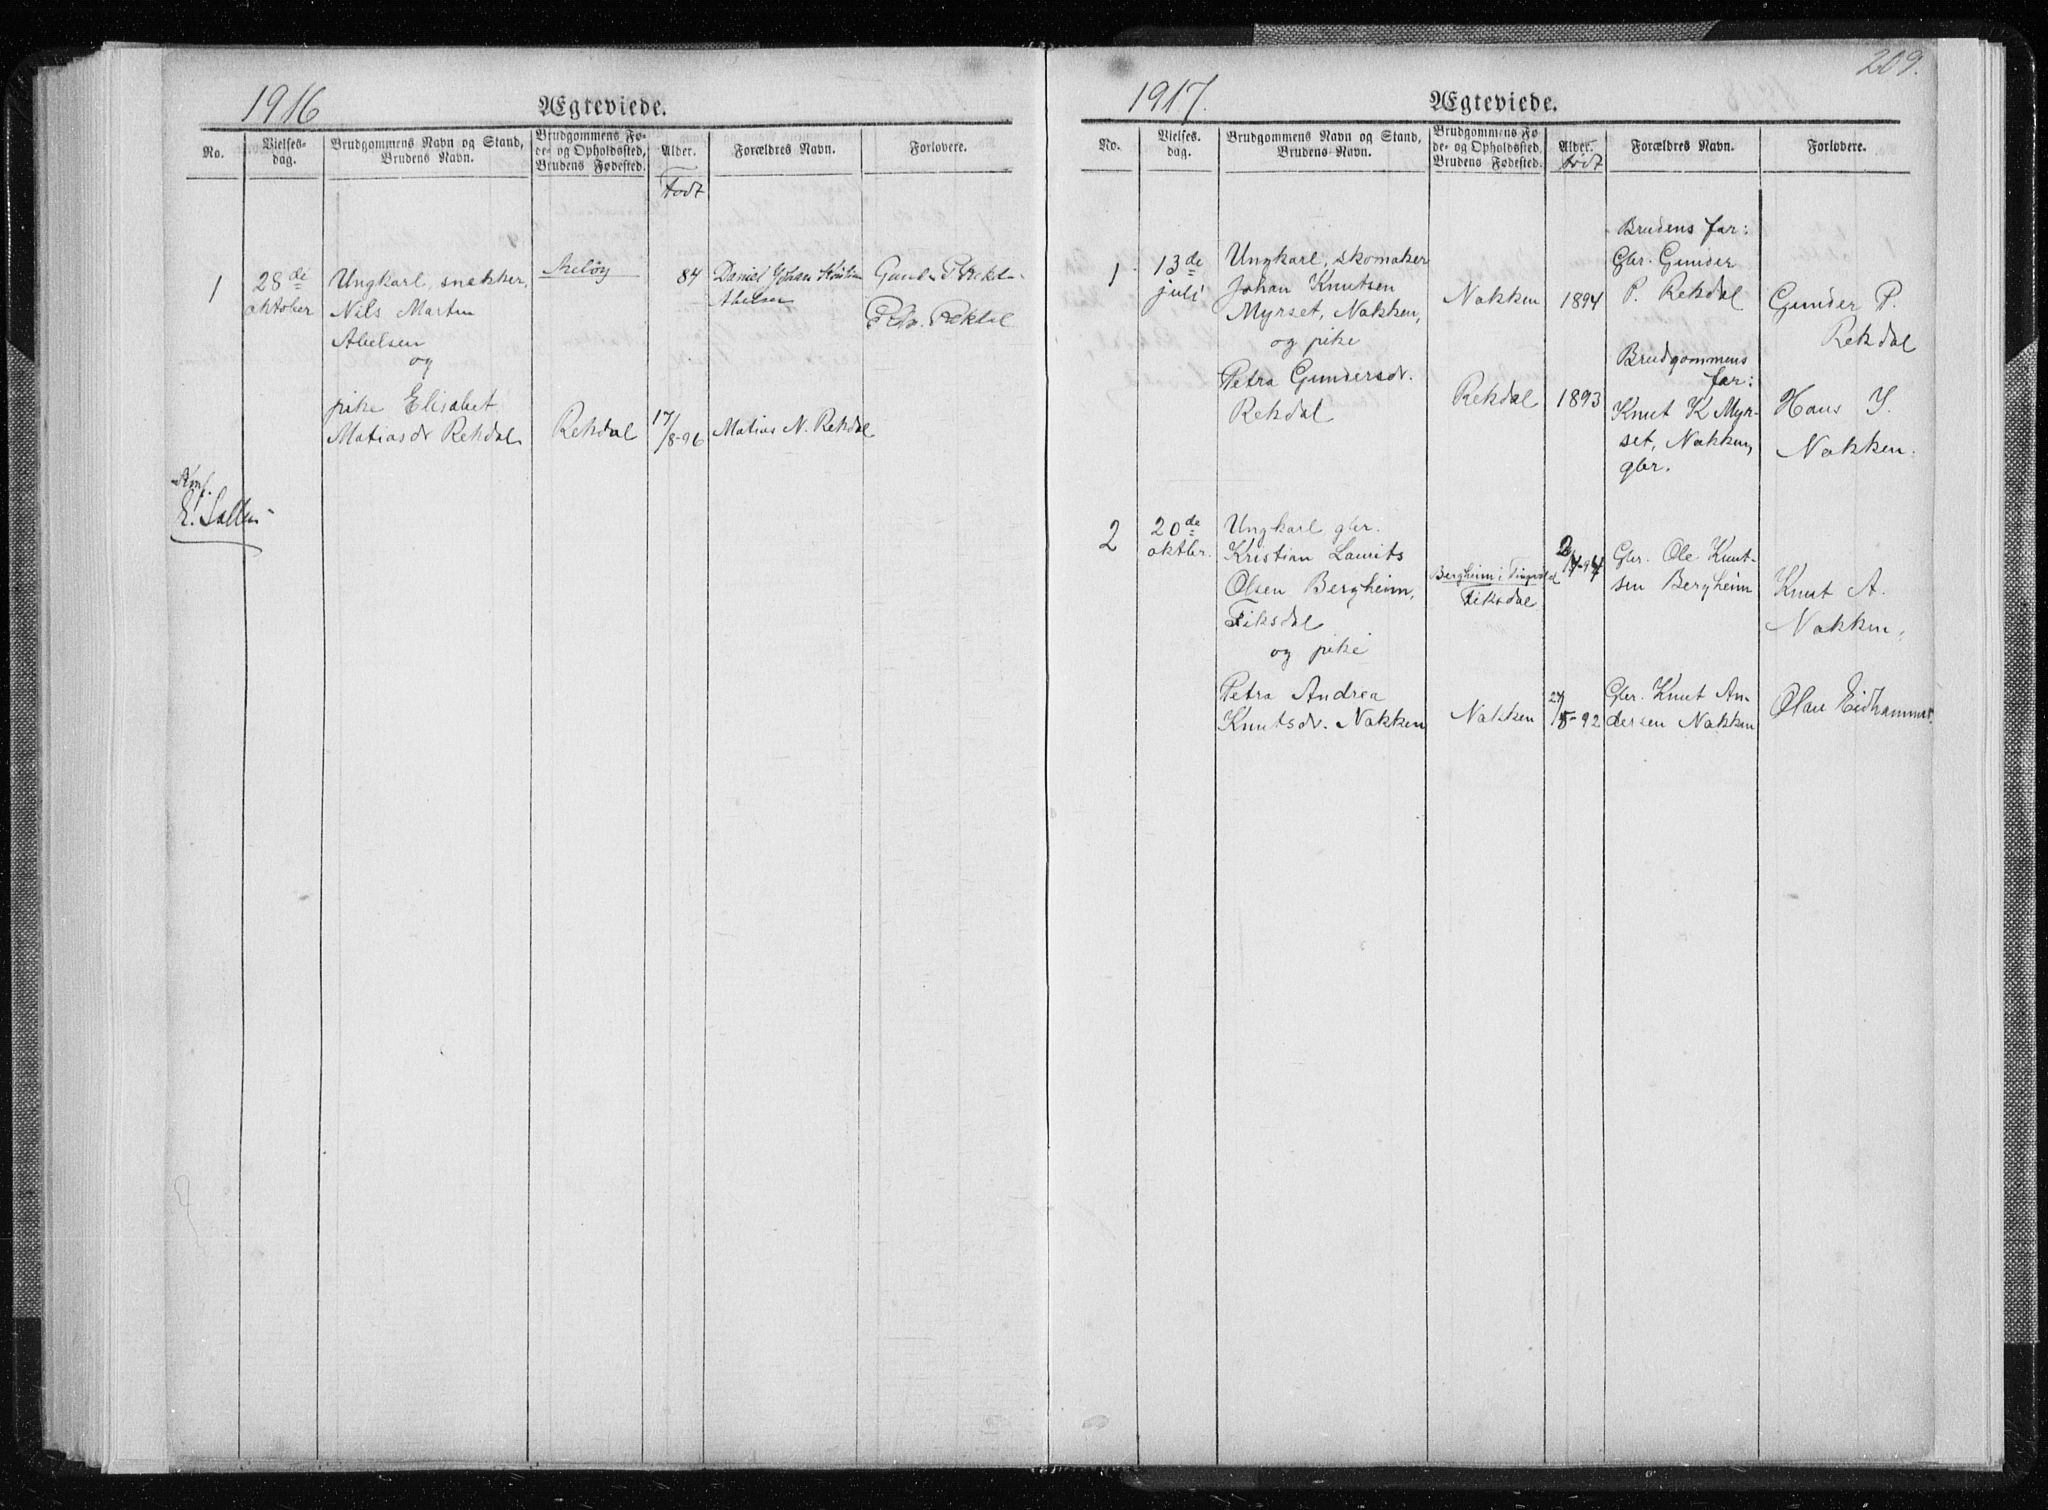 1916
Ægteviede.
No.
Vielses-
dag.
Brudgommens Navn og Stand,
Brudens Navn.
Brudgommens Fø-
de- og Opholdssted,
Brudens Fødested.
Alder.
Født
Forældres Navn.
Forlovere.
1
28de
oktober
Ungkarl, snekker,
Nils Martin
Abelsen
og
pike Elisabet
Matiasdr Rekdal
Rekdal
84
17/8-96
Daniel Johan Kristian
Abelsen
Matias N. Rekdal
P. Rekdal
Konf.
1917.
Ægteviede.
209.
No.
Vielses-
dag.
Brudgommens Navn og Stand,
Brudens Navn.
Brudgommens Fø
de- og Opholdssted,
Brudens Fødested.
Alder.
Født
Forældres Navn.
Forlovere.
1
13de
juli
Ungkarl, skomaker
Johan Knutsen
Myrset, Nakken,
og pike
Petra Gundersdr.
Rekdal
Nakken
Rekdal
1894
1893
Brudens far:
Gbr. Gunder
P. Rekdal
Brudgommens
far:
Knut K Myr-
set, Nakken,
gbr.
Gunder P.
Rekdal
Hans J.
Nakken.
2
20de
oktbr.
Ungkarl gbr.
Kristian Laurits
Olsen Bergheim,
Fiksdal
og pike
Petra Andrea
Knutsdr. Nakken
Bergheim i Tingvold
Fiksdal
Nakken
24/5-92
Gbr. Ole Knut-
sen Bergheim
Gbr. Knut An
dersen Nakken
Knut A.
Nakken,
Olav Eidhammer.